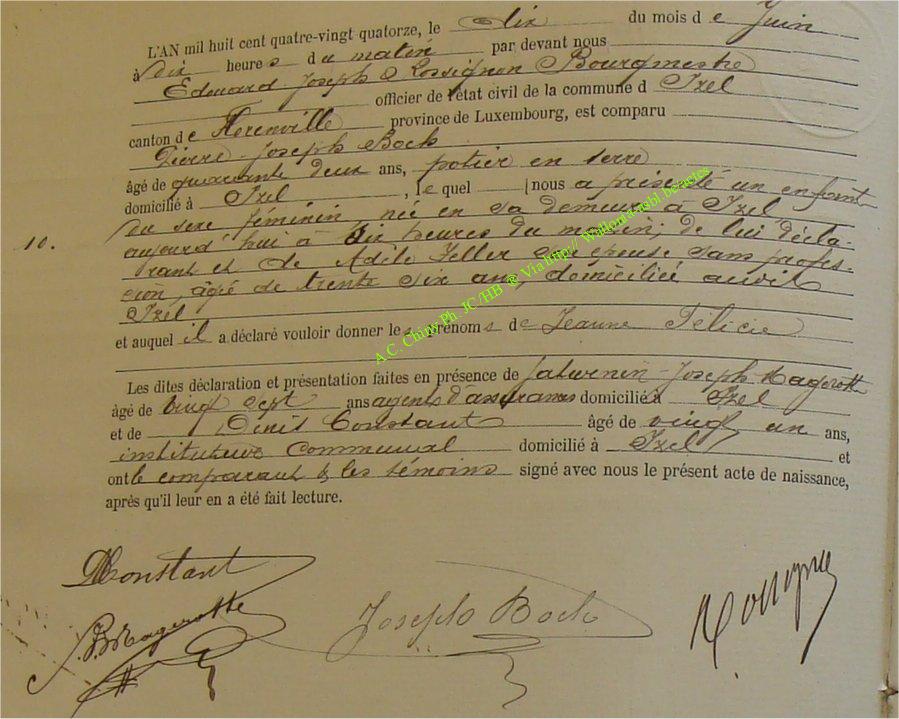 L'AN mil huit cent quatre-vingt quatorze, le dix du mois de Juin
à dix heures du matin par devant nous
Edouard Joseph Rossignon Bourgmestre
officier de l'état civil de la commune d Izel
canton de Florenville province de Luxembourg, est comparu
Pierre Joseph Bock
âgé de quarante deux ans, potier en terre
domicilié à Izel, le quel nous a présenté un enfant
du sexe féminin, née en sa demeure à Izel
10. aujourd'hui à six heures du matin, de lui décla-
rant et de Adile Feller son épouse sans profes-
sion, âgée de trente six ans, domiciliée audit
Izel
et auquel il a déclaré vouloir donner les prénoms de Jeanne Félicie
Les dites déclaration et présentation faites en présence de Saturnin-Joseph Magerotte
âgé de vingt sept ans agent d'assurances domicilié à Izel
et de Denis Constant âgé de vingt un ans,
instituteur communal domicilié à Izel et
ont le comparant & les témoins signé avec nous le présent acte de naissance,
après qu'il leur en a été fait lecture.
DConstant
Magerotte
Joseph Bock
A.C. Chiny Ph. JC/HB @ Via http:// Wallonia-asbl.be/actes